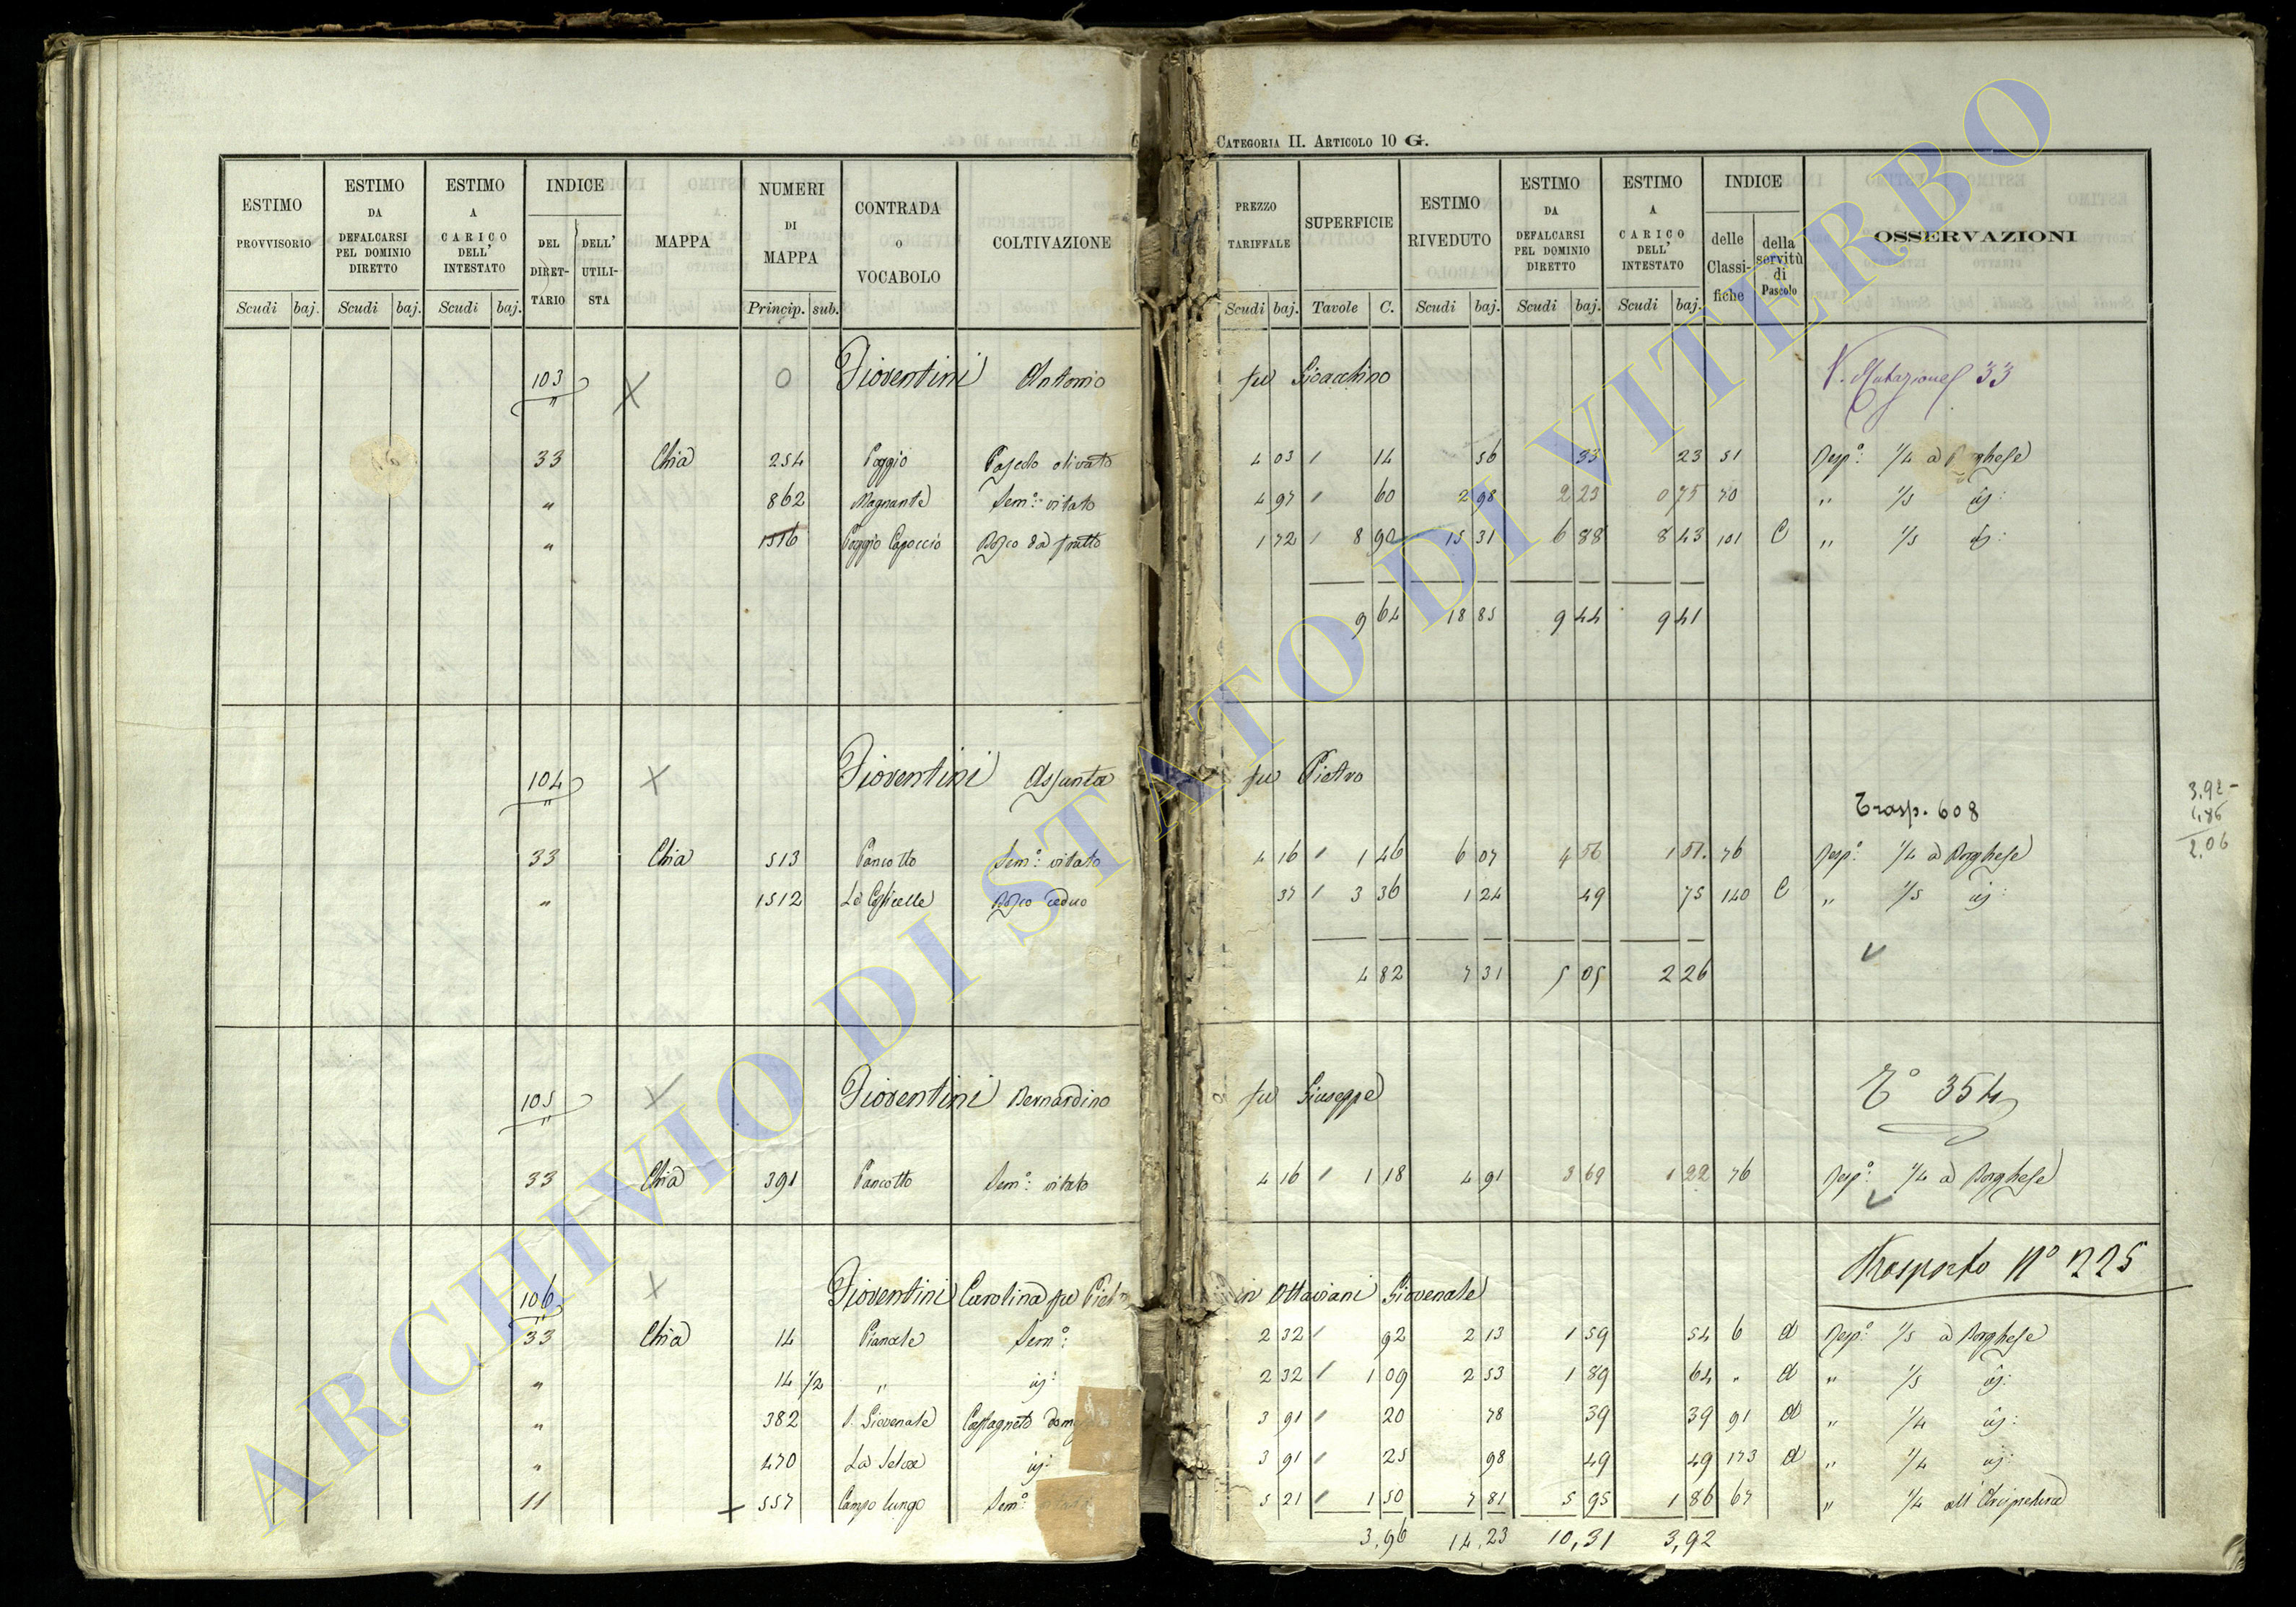 CATEGORIA II. ARTICOLO 10 G.
ESTIMO PROVVISORIO Scudi baj.
ESTIMO DA DEFALCARSI PEL DOMINIO DIRETTO Scudi baj.
ESTIMO A CARICO DELL' INTESTATO Scudi baj.
INDICE DEL DIRET-TARIO DELL' UTILI-STA
MAPPA
NUMERI DI MAPPA Princip. sub.
CONTRADA O VOCABOLO
COLTIVAZIONE
PREZZO TARIFFALE Scudi baj.
SUPERFICIE Tavole C.
ESTIMO RIVEDUTO Scudi baj.
ESTIMO DA DEFALCARSI PEL DOMINIO DIRETTO Scudi baj.
ESTIMO A CARICO DELL' INTESTATO Scudi baj.
INDICE delle Classi-fiche della servitù di Pascolo
OSSERVAZIONI
103 X 0 Fioventini Antonio fu Gioacchino V. Mutazione 33
33 Chia 254 Poggio Pascolo olivato 4 03 / 14 56 33 23 51 Risp.º: 1/4 a Borghese
" 862 Magnante Sem.º: vitato 4 97 / 60 2 98 2 23 0 75 70 " 1/5 id:
" 1516 Poggio Capoccio Bosco da frutto 1 72 / 8 90 15 31 6 88 8 43 101 C " 1/5 id:
9 64 18 85 9 44 9 41
104 X Fioventini Assunta fu Pietro
Trasp. 608
3,92 -
1,86
2,06
33 Chia 513 Pancotto Sem.º: vitato 4 16 / 1 46 6 07 4 56 1 51. 76 Risp.º: 1/4 a Borghese
" 1512 Le Casicelle Bosco ceduo 37 / 3 36 1 24 49 75 140 C " 1/5 id:
4 82 7 31 5 05 2 26
105 X Fioventini Bernardino fu Giuseppe Tº 354
33 Chia 391 Pancotto Sem.º: vitato 4 16 / 1 18 4 91 3 69 1 22 76 Risp.º: 1/4 a Borghese
Trasporto Nº 225
106 X Fioventini Carolina fu Pietro in Ottaviani Giovenale
33 Chia 14 Pianale Sem.º: 2 32 / 92 2 13 1 59 54 6 d Risp.º: 1/5 a Borghese
" 14 1/2 " id: 2 32 / 1 09 2 53 1 89 64 " d " 1/5 id:
" 382 S. Giovenale Castagneto 3 91 / 20 78 39 39 91 d " 1/4 id:
" 470 La Selva id: 3 91 / 25 98 49 49 173 d " 1/4 id:
11 557 Campo lungo Sem.º: vitato 5 21 / 1 50 7 81 5 95 1 86 67 " 1/4 all'Arcipretura
3,96 14,23 10,31 3,92
ARCHIVIO DI STATO DI VITERBO